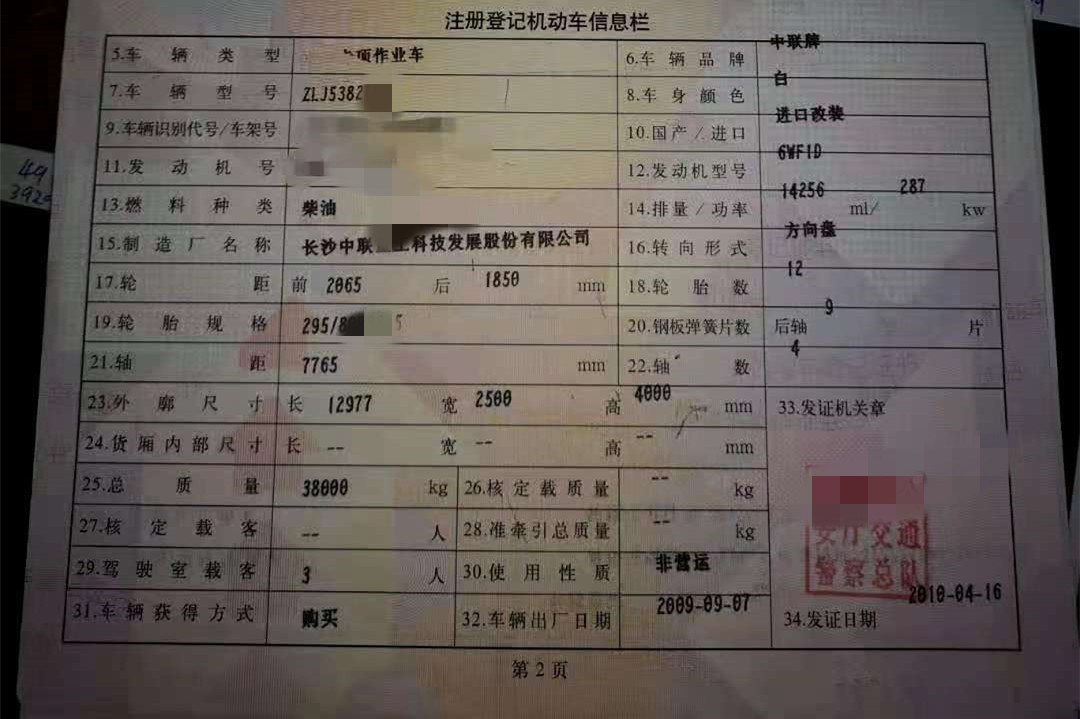 注册登记机动车信息栏
5.车辆类型 项作业车 6.车辆品牌 中联牌
7.车辆型号 ZLJ5382 8.车身颜色 白
9.车辆识别代号/车架号 10.国产/进口 进口改装
11.发动机号 12.发动机型号 6WF1D
13.燃料种类 柴油 14.排量/功率 14256 ml/ 287 kw
15.制造厂名称 长沙中联 科技发展股份有限公司 16.转向形式 方向盘
17.轮距 前 2065 后 1850 mm 18.轮胎数 12
19.轮胎规格 295/8 5 20.钢板弹簧片数 后轴 9 片
21.轴距 7765 mm 22.轴数 4
23.外廓尺寸 长 12977 宽 2500 高 4000 mm 33.发证机关章
24.货厢内部尺寸 长 -- 宽 -- 高 -- mm
25.总质量 38000 kg 26.核定载质量 -- kg
27.核定载客 -- 人 28.准牵引总质量 -- kg
安厅交通
警察总队
29.驾驶室载客 3 人 30.使用性质 非营运
31.车辆获得方式 购买 32.车辆出厂日期 2009-09-07 34.发证日期 2010-04-16
第2页
49